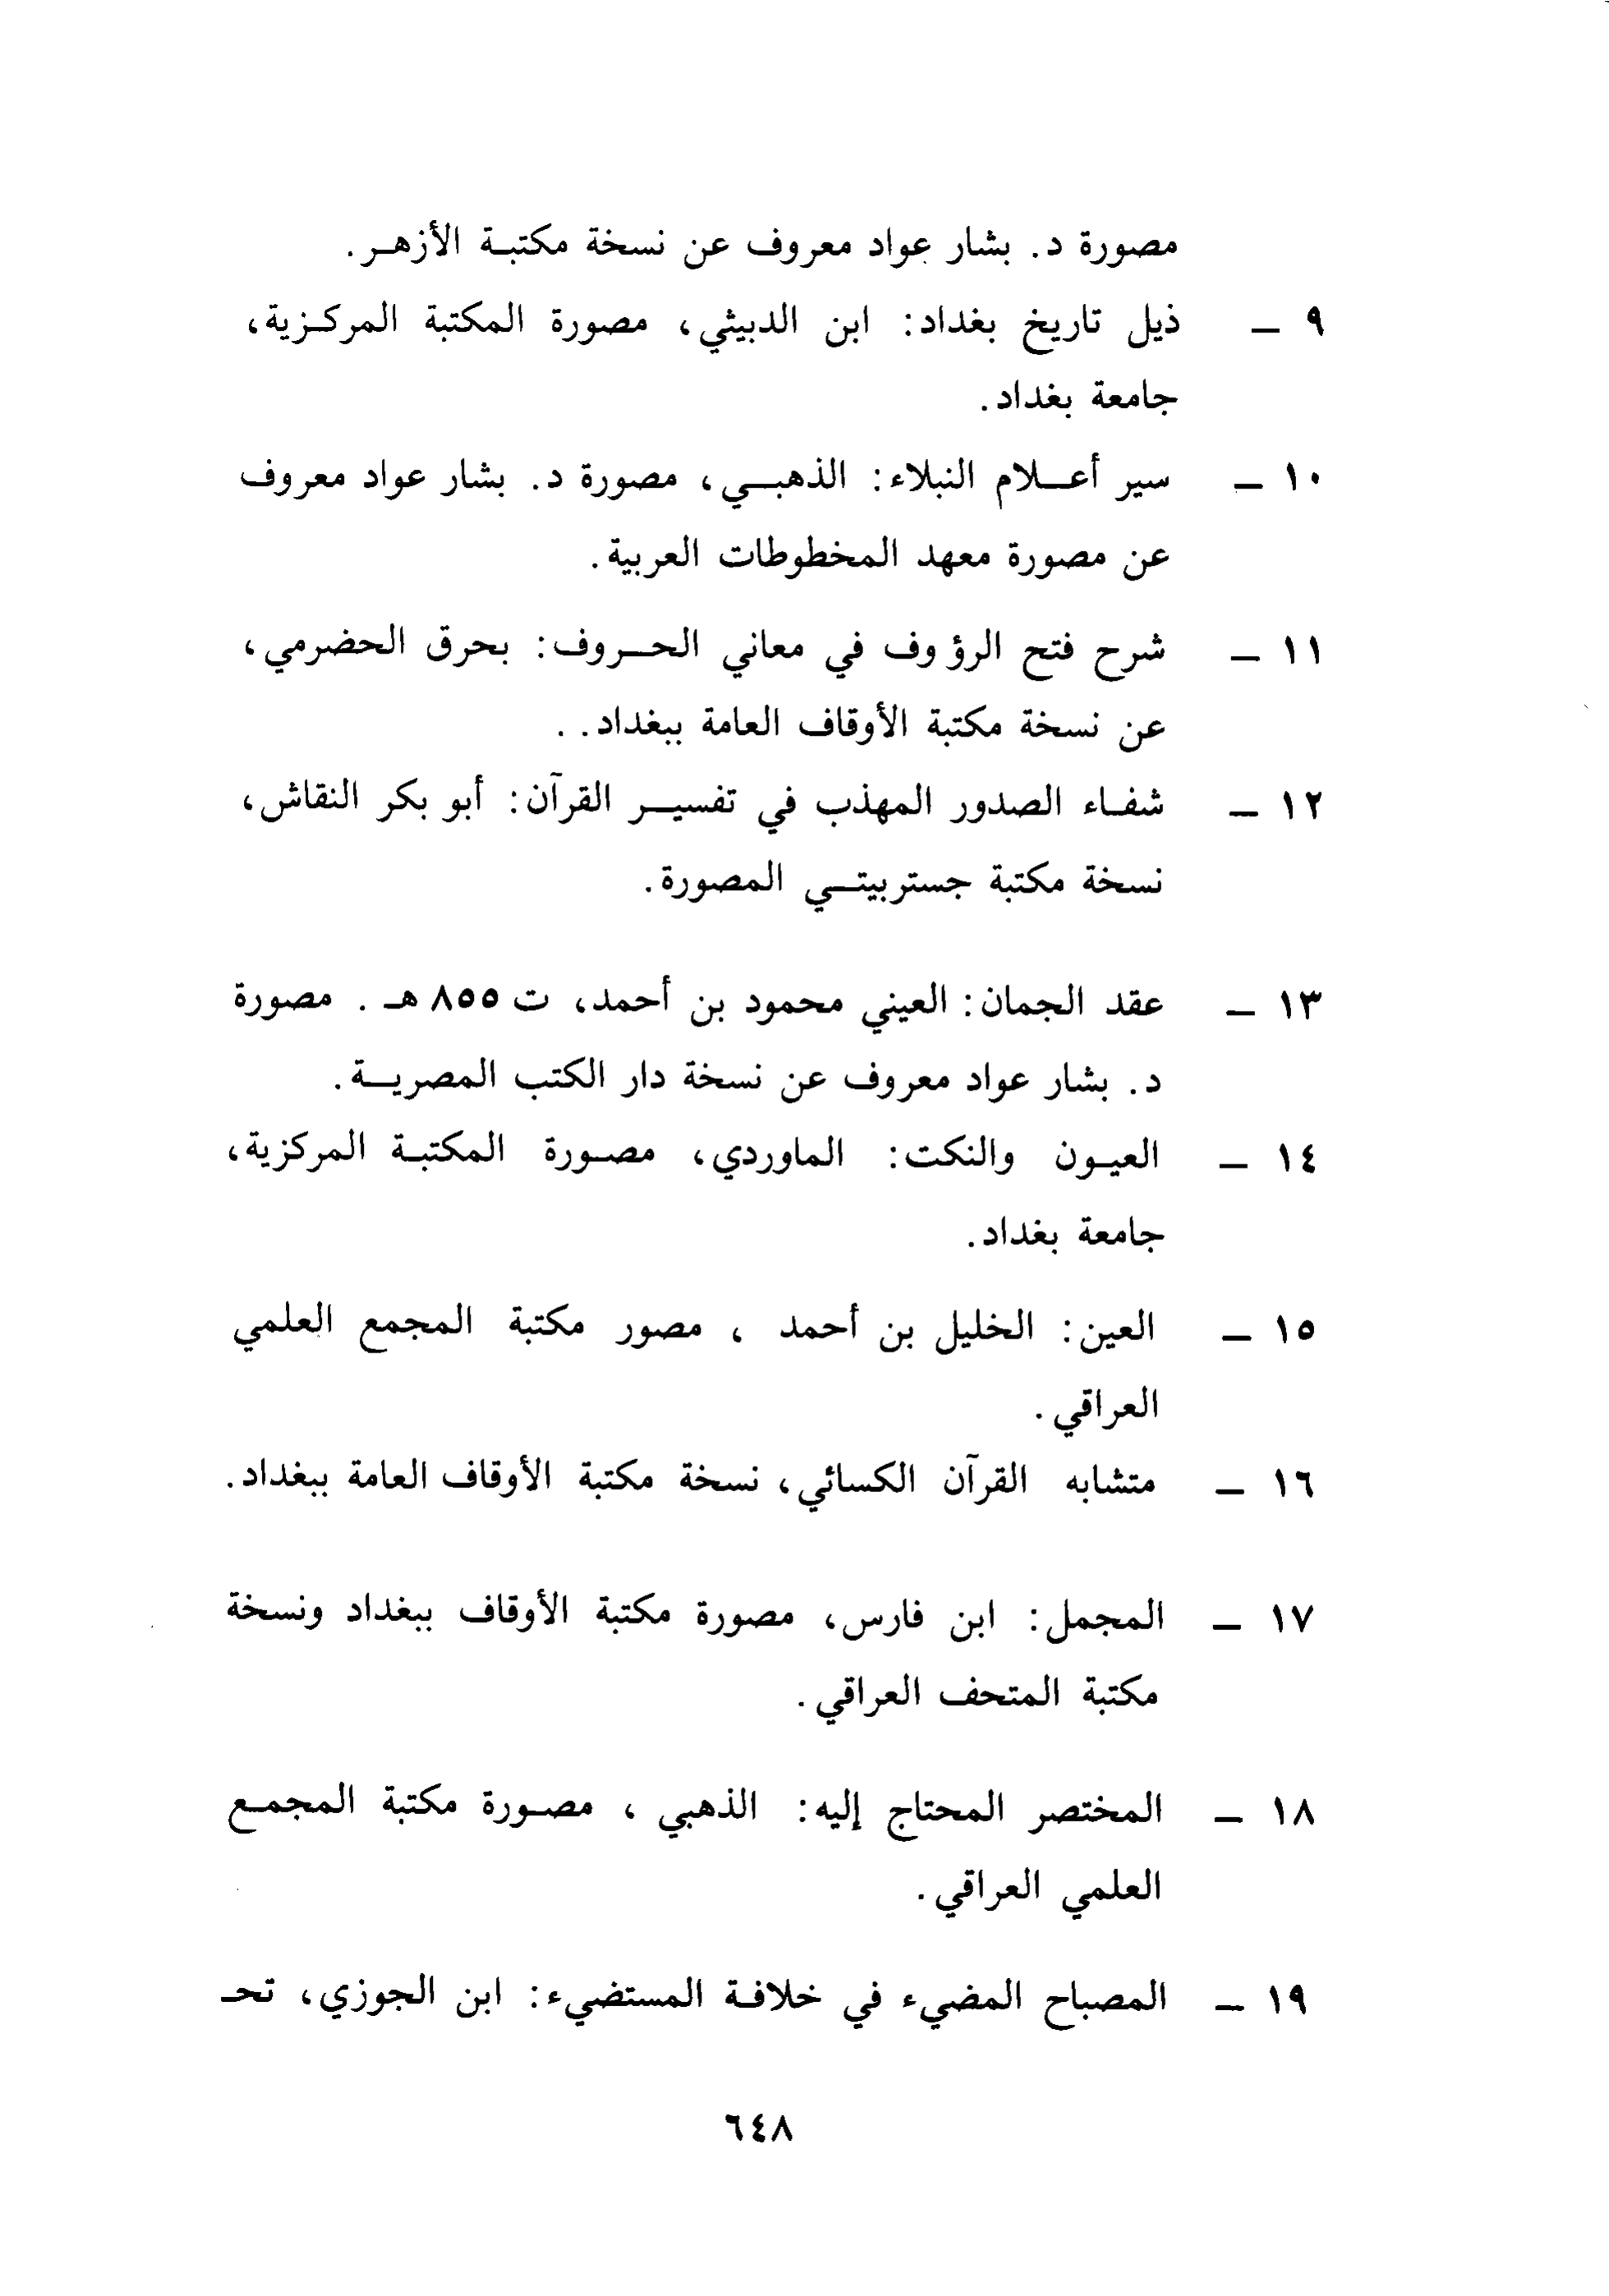 مصورة د. بشار عواد معروف عن نسخة مكتبة الأزهر.
٩ – ذيل تاريخ بغداد: ابن الدبيثي، مصورة المكتبة المركزية،
جامعة بغداد.
١٠ – سير أعلام النبلاء: الذهبي، مصورة د. بشار عواد معروف
عن مصورة معهد المخطوطات العربية.
١١ – شرح فتح الرؤوف في معاني الحروف: بحرق الحضرمي،
عن نسخة مكتبة الأوقاف العامة ببغداد. .
١٢ – شفاء الصدور المهذب في تفسير القرآن: أبو بكر النقاش،
نسخة مكتبة جستربيتي المصورة.
١٣ – عقد الجمان: العيني محمود بن أحمد، ت ٨٥٥ هـ . مصورة
د. بشار عواد معروف عن نسخة دار الكتب المصرية.
١٤ – العيون والنكت: الماوردي، مصورة المكتبة المركزية،
جامعة بغداد.
١٥ – العين: الخليل بن أحمد ، مصور مكتبة المجمع العلمي
العراقي.
١٦ – متشابه القرآن الكسائي، نسخة مكتبة الأوقاف العامة ببغداد.
١٧ – المجمل: ابن فارس، مصورة مكتبة الأوقاف ببغداد ونسخة
مكتبة المتحف العراقي.
١٨ – المختصر المحتاج إليه: الذهبي ، مصورة مكتبة المجمع
العلمي العراقي.
١٩ – المصباح المضيء في خلافة المستضيء: ابن الجوزي، تحـ
٦٤٨